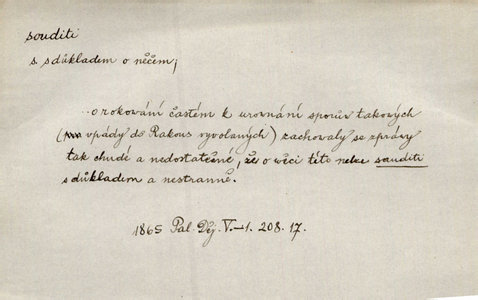 souditi
s sdůkladem o něčem;
..o rokování častém k urovnání sporův takových
( vpády do Rakous vyvolaných) zachovaly se zprávy
tak chudé a nedostatečné, že o věci této nelze souditi
s důkladem a nestranně.
1865 Pal. Děj. V.-1. 208. 17.